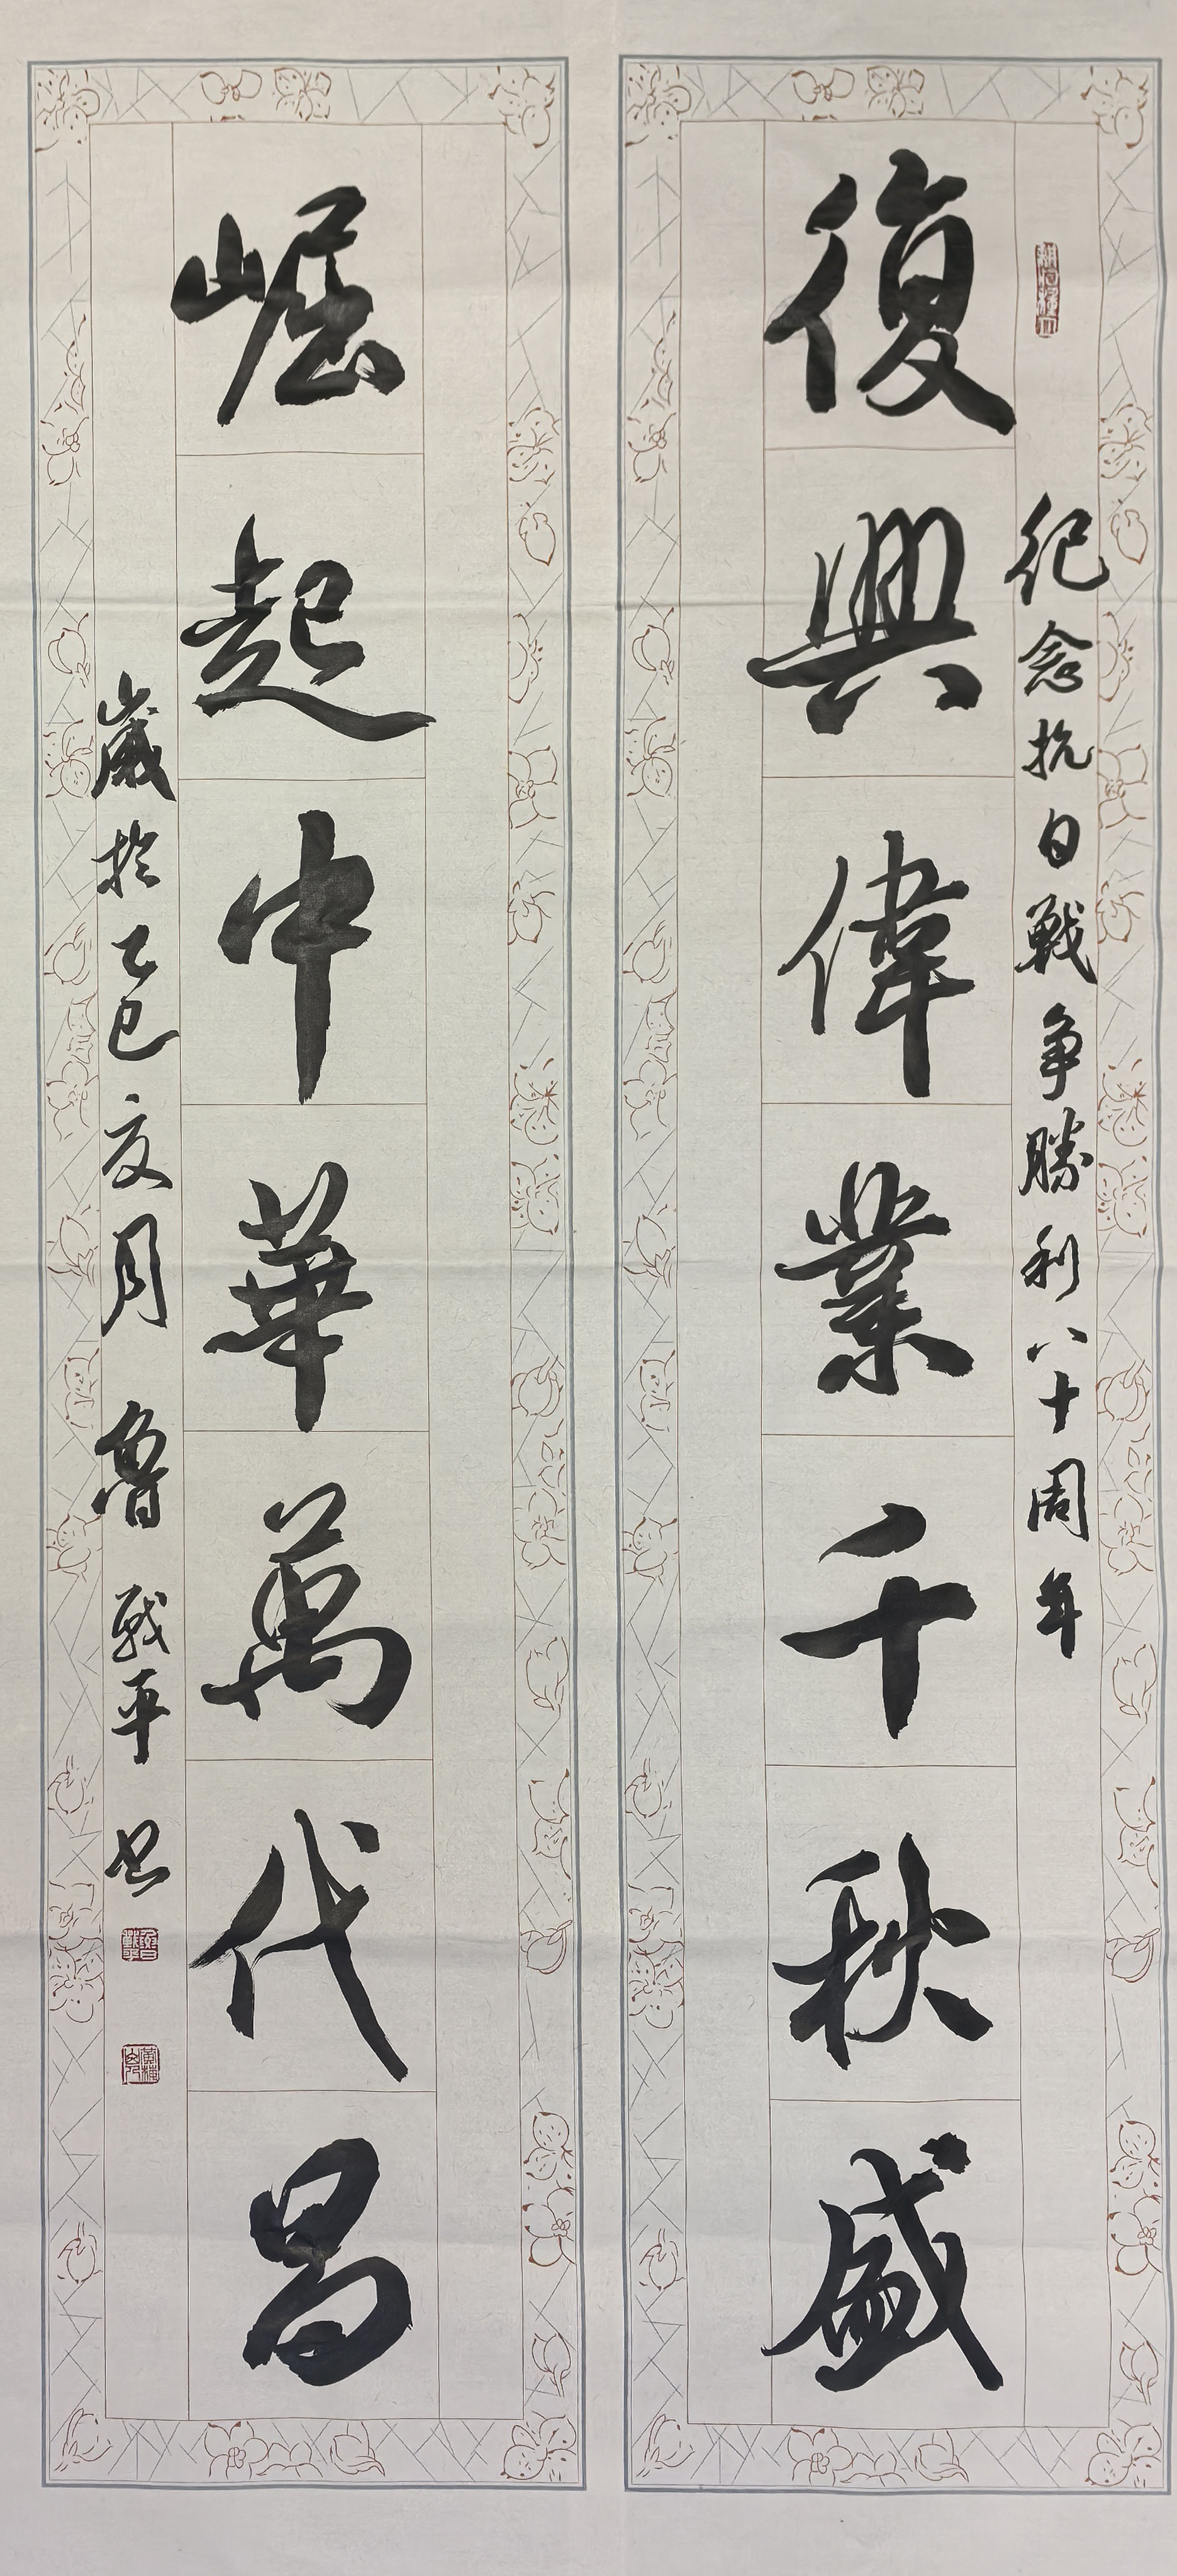 紀念抗日戰争勝利八十周年
復興偉業千秋盛
崛起中華萬代昌
歲於乙巳夏月 魯戰平书